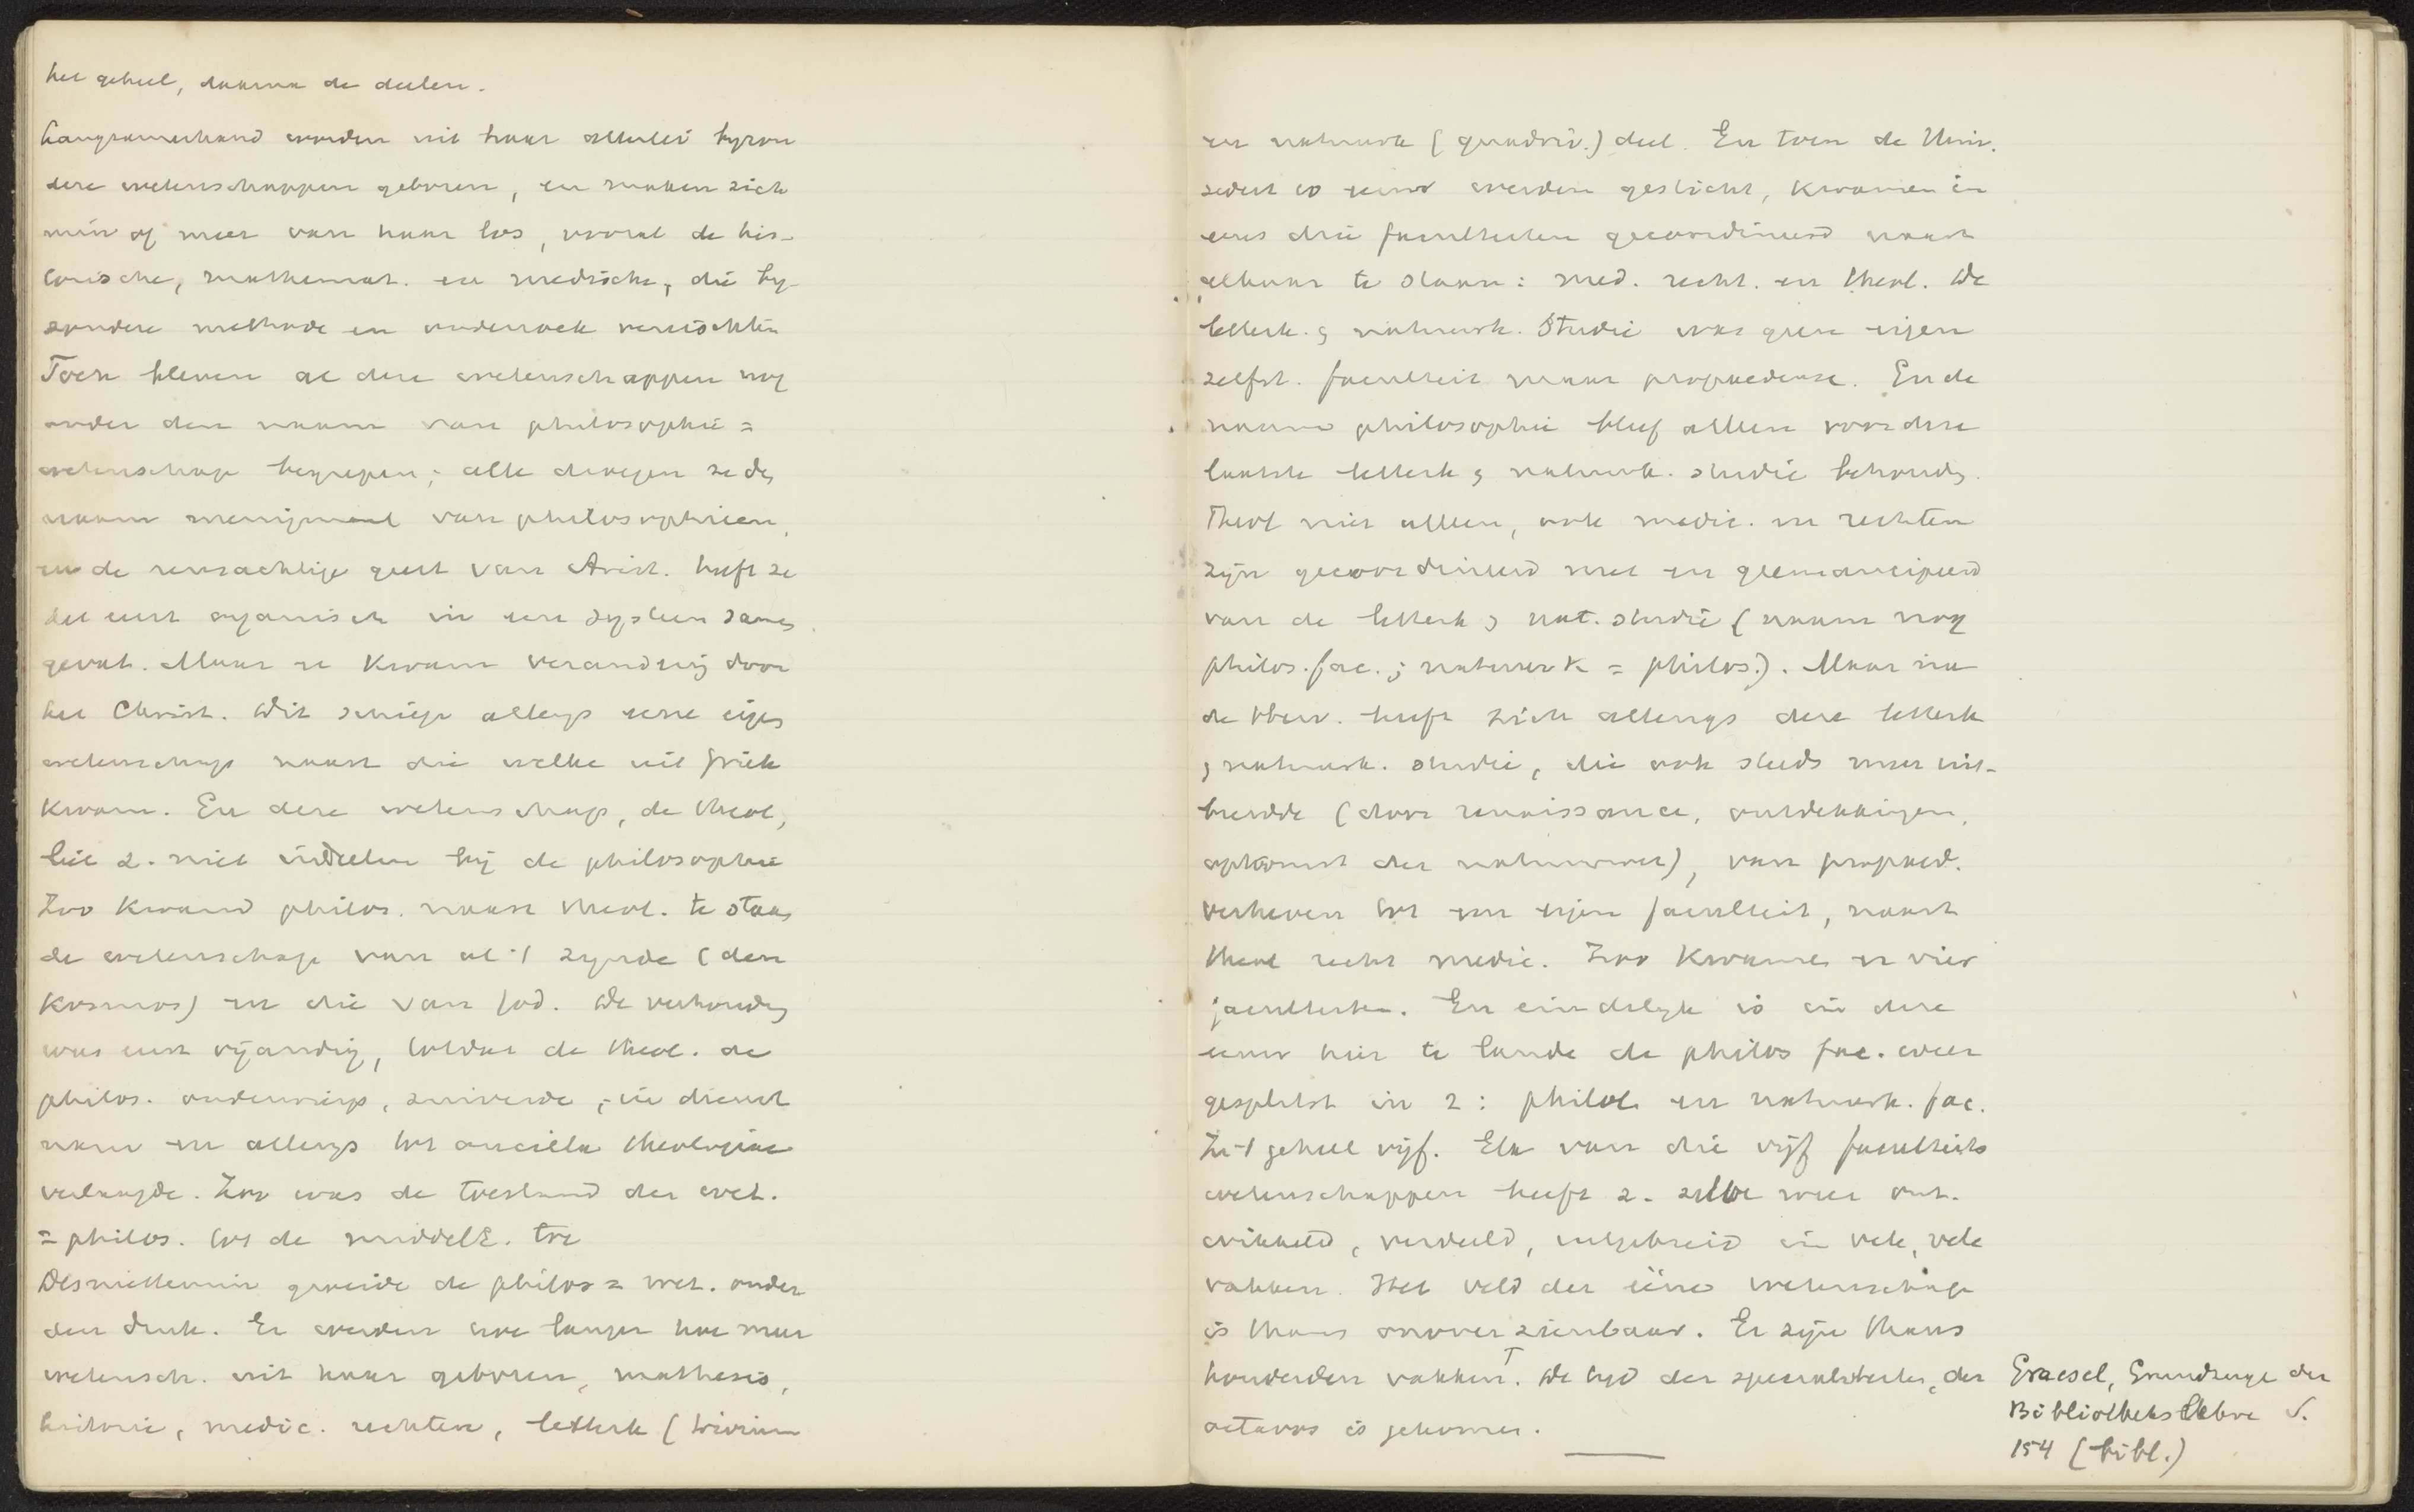 het geheel, daarna de deelen.
Langzamerhand worden uit haar allerlei byzon
dere wetenschappen geboren, en maken zich
min of meer van haar los, vooral de his-
torische, mathemat. en medische, die by-
zondere methode en onderzoek vereischten
Toch bleven al deze wetenschappen nog
onder den naam van philosophie =
wetenschap begrepen; alle droegen ze dez
naam menigmaal van philosophieen,
en de reusachtige geest van Arist. heeft ze
het eerst organisch in een systeem samen
gevat. Maar er kwam verandering door
het Christ. Dit schiep allengs eene eigen
wetenschap naast die welke uit Griek
kwam. En deze wetenschap, de theol,
liet z. niet indeelen bij de philosophie
Zoo kwam philos. naast theol. te staan
de wetenschap van al 't zynde (den
kosmos) en die van God. De verhouding
was eerst vijandig, totdat de theol. de
philos. onderwierp, zuiverde, in dienst
nam en allengs tot ancilla theologiae
verlaagde. Zoo was de toestand der wet.
= philos. tot de middelE. toe
Desniettemin groeide de philos = wet. onder
den druk. Er werden hoe langer hoe meer
wetensch. uit haar geboren, mathesis,
historie, medic. rechten, letterk (trivium
en natuurk (quadriv.) deel. En toen de Univ.
sedert 12 eeuw werden gesticht, kwamen in
eens drie faculteiten gecoordineerd naast
elkaar te staan: med. recht. en theol. De
letterk. & natuurk. Studie was geen eigen
zelfst. faculteit maar propaedeuse. En de
naam philosophie bleef alleen voor deze
laatste letterk & natuurk. studie behouden.
Theol niet alleen, ook medic. en rechten
zijn gecoordineerd met en geemancipeerd
van de letterk & nat. studie (naam nog
philos. fac.; natuurk = philos.). Maar na
de Herv. heeft zich allengs deze letterk
& natuurk. studie, die ook steeds meer uit-
breidde (door renaissance, ontdekkingen,
opkomst der natuurwet), van propaed.
verheven tot een eigen faculteit, naast
theol recht medic. Zoo kwamen er vier
faculteiten. En eindelyk is in deze
eeuw hier te lande de philos fac. weer
gesplitst in 2: philol en natuurk. fac.
In 't geheel vijf. Elk van die vijf faculteits
wetenschappen heeft z. zelve weer ont-
wikkeld, verdeeld, uitgebreid in vele, vele
vakken. Het veld der ééne wetenschap
is thans onoverzienbaar. Er zijn thans
honderden vakken.⊤ De tyd der specialiteiten, der
octavos is gekomen.
Graesel, Grundzüge der
Bibliothekslehre S.
154 (bibl.)